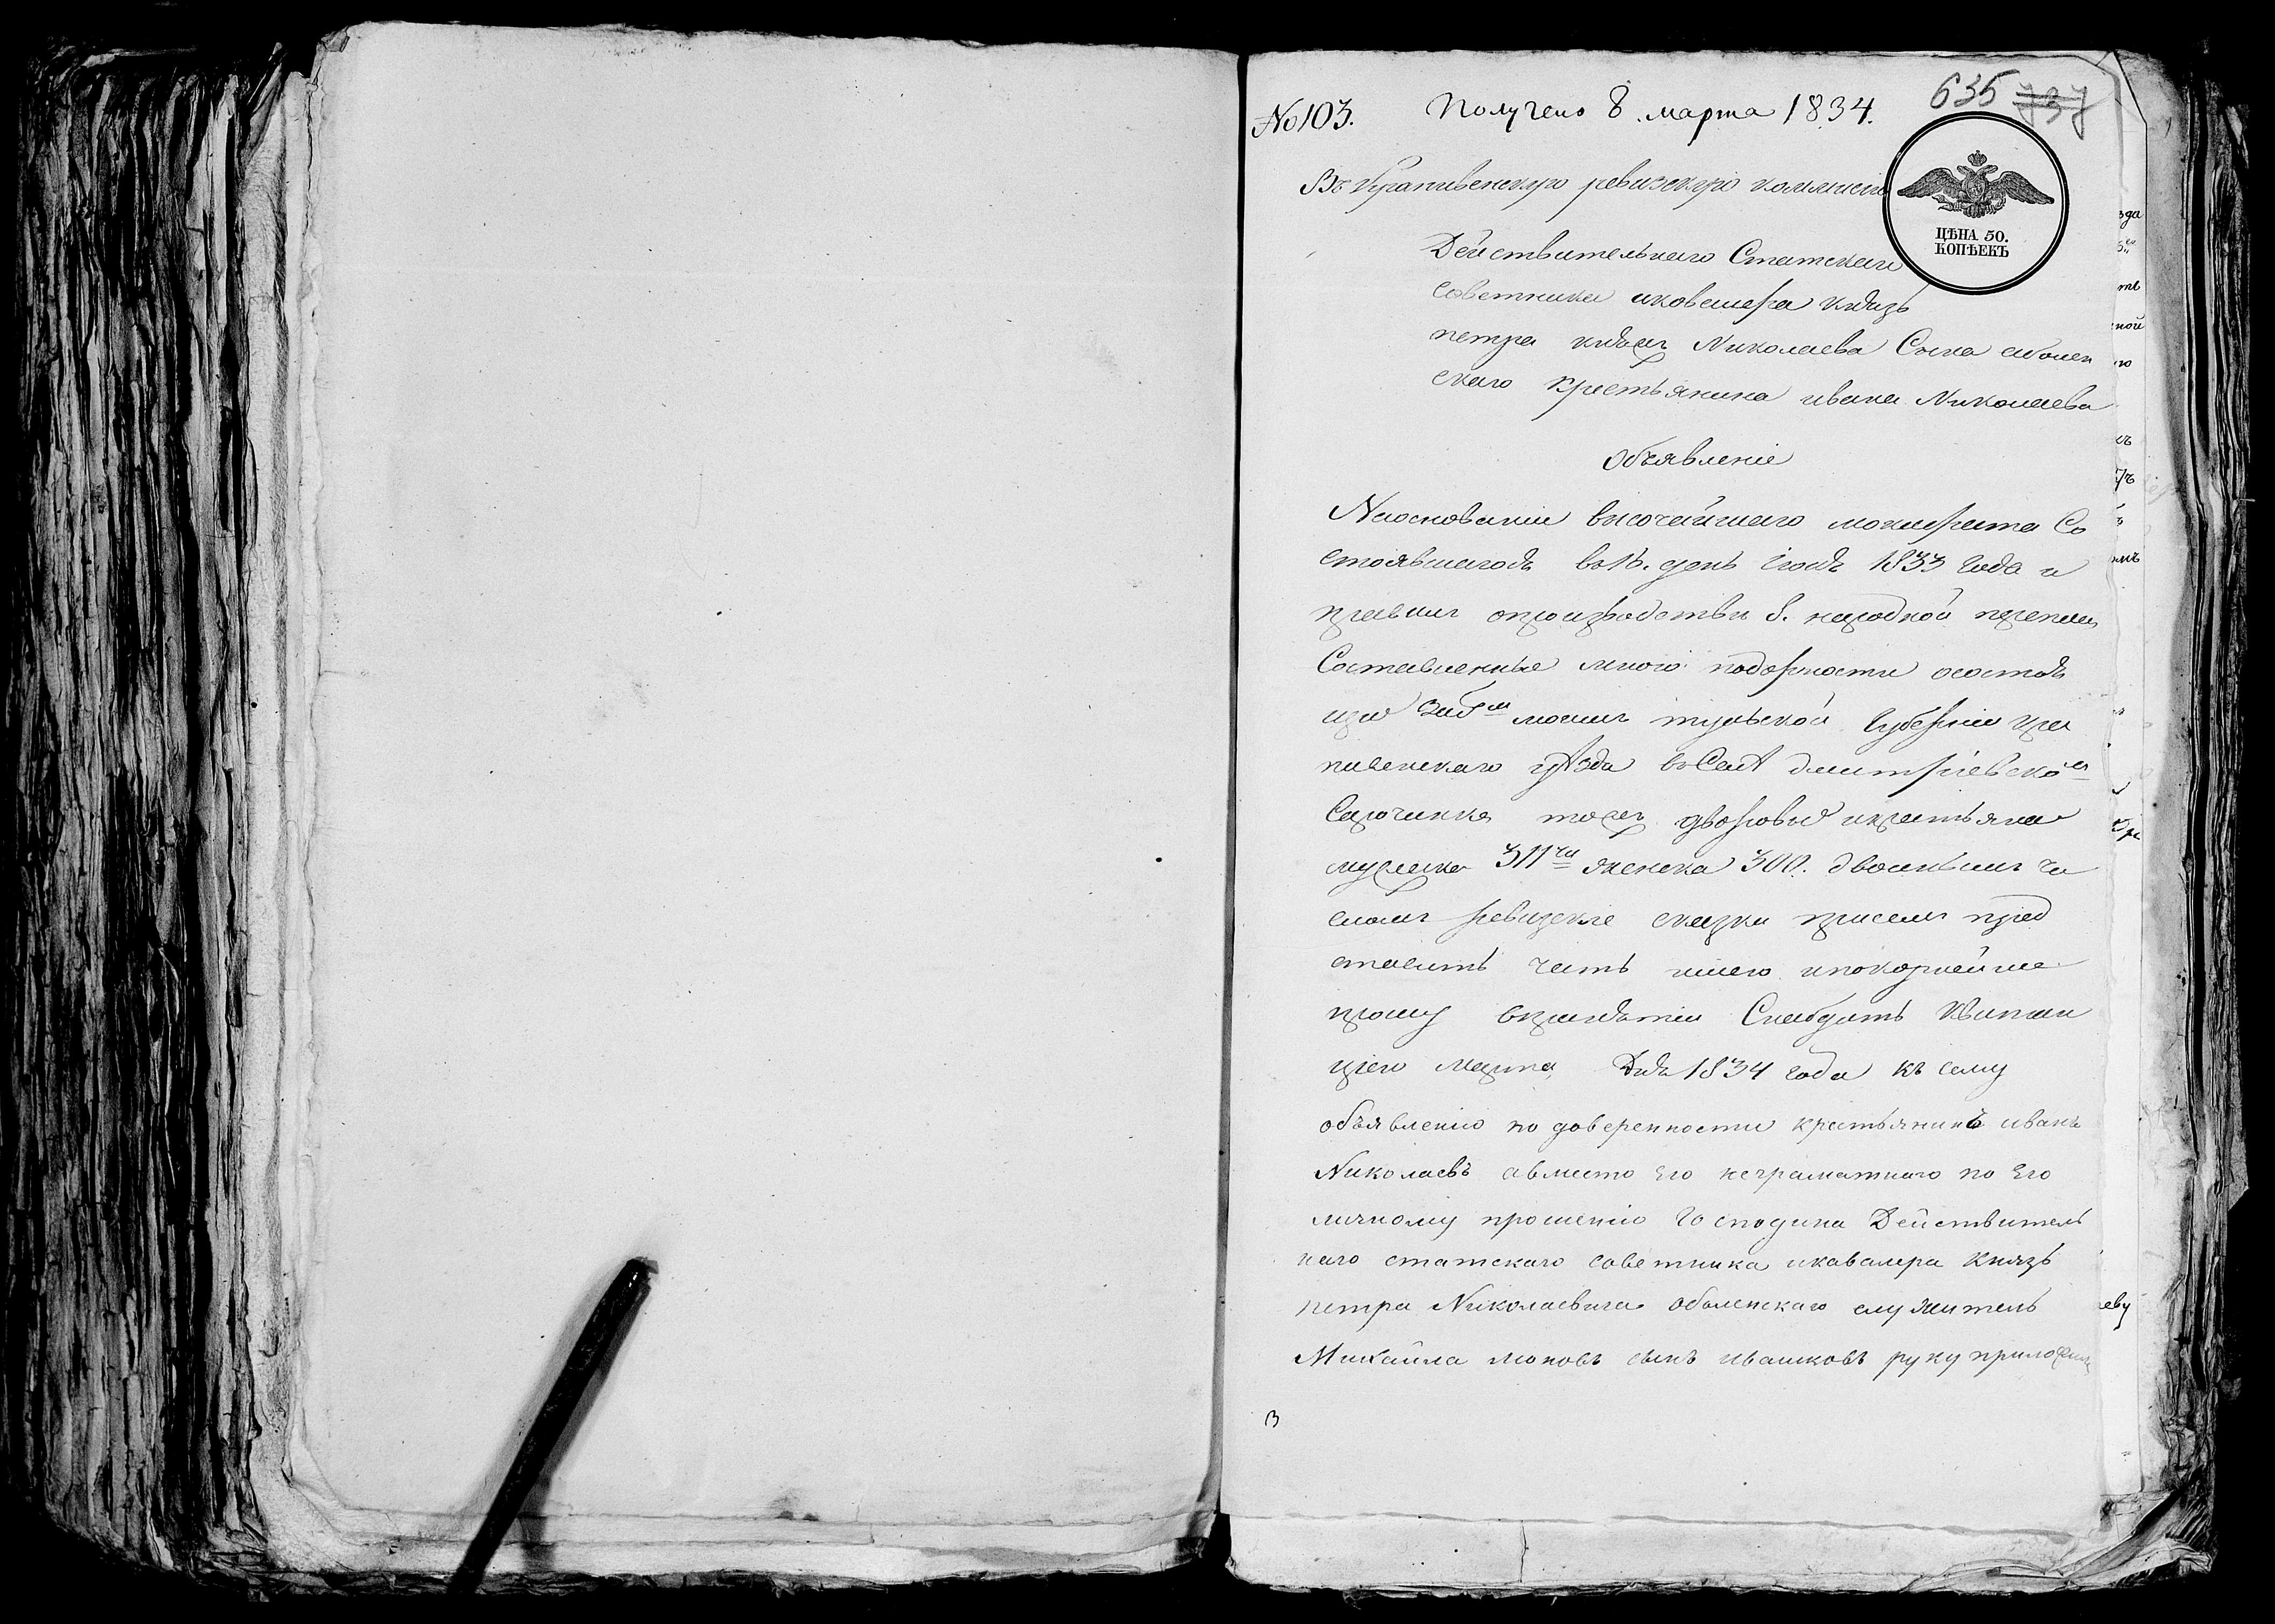 635 737
№ 103. Получено 8 марта 1834.
ЦѢНА 50.
КОПѢЕКЪ
Въ Крапивенскую ревизскую коммисію
Действительнаго Статскаго
советника икавалера князь
петра князь Николаева Сына аболен
скаго крестьянина ивана Николаева
Объявленіе
Наосновании высочайшаго монифеста Со
стоявшагося въ 16. день іюня 1833 года и
правил опроизводстве 8. народной переписи
Составленные мною подробности осостоя
щих заб͞м моим тульской Губернии кра
пивенскаго уѣзда въ Селѣ дмитріевском
Сарочинка тож дворовые икрестьяна
мужеска 311 женска 300. двойным чи
слом ревизские сказки присем пред
ставить честь имею ипокорнейше
прошу впринятии Снабдить Квитан
циею марта Дня 1834 года къ сему
объявлению по доверенности крестьянинъ иванъ
Николаевъ авместо Его неграматнаго по Его
личному прошению Господина Действитель
наго статскаго советника икавалера Князь
петра Николаевича оболенскаго служитель
Михайла сынъ ивашковъ руку приложил